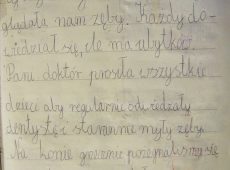 glądała nam zęby. Każdy do-
wiedział się, ile ma ubytków.
Pani doktor prosiła wszystkie
dzieci aby regularnie odwiedzały
dentystę i starannie myły zęby.
Na koniec grzecznie pożegnaliśmy się